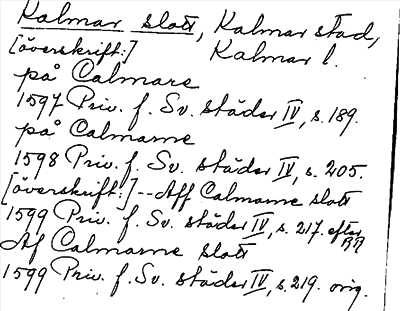 Kalmar slott, Kalmar stad,
[överskrift:] Kalmar l.
på Calmare
1597 Priv. f. Sv. städer IV, s. 189.
på Calmarne
1598 Priv. f. Sv. städer IV, s. 205.
[överskrift:] -- Aff Calmarne slott
1599 Priv. f. Sv. städer IV, s. 217. efter RR
Af Calmarne slott
1599 Priv. f. Sv. städer IV, s. 219. orig.